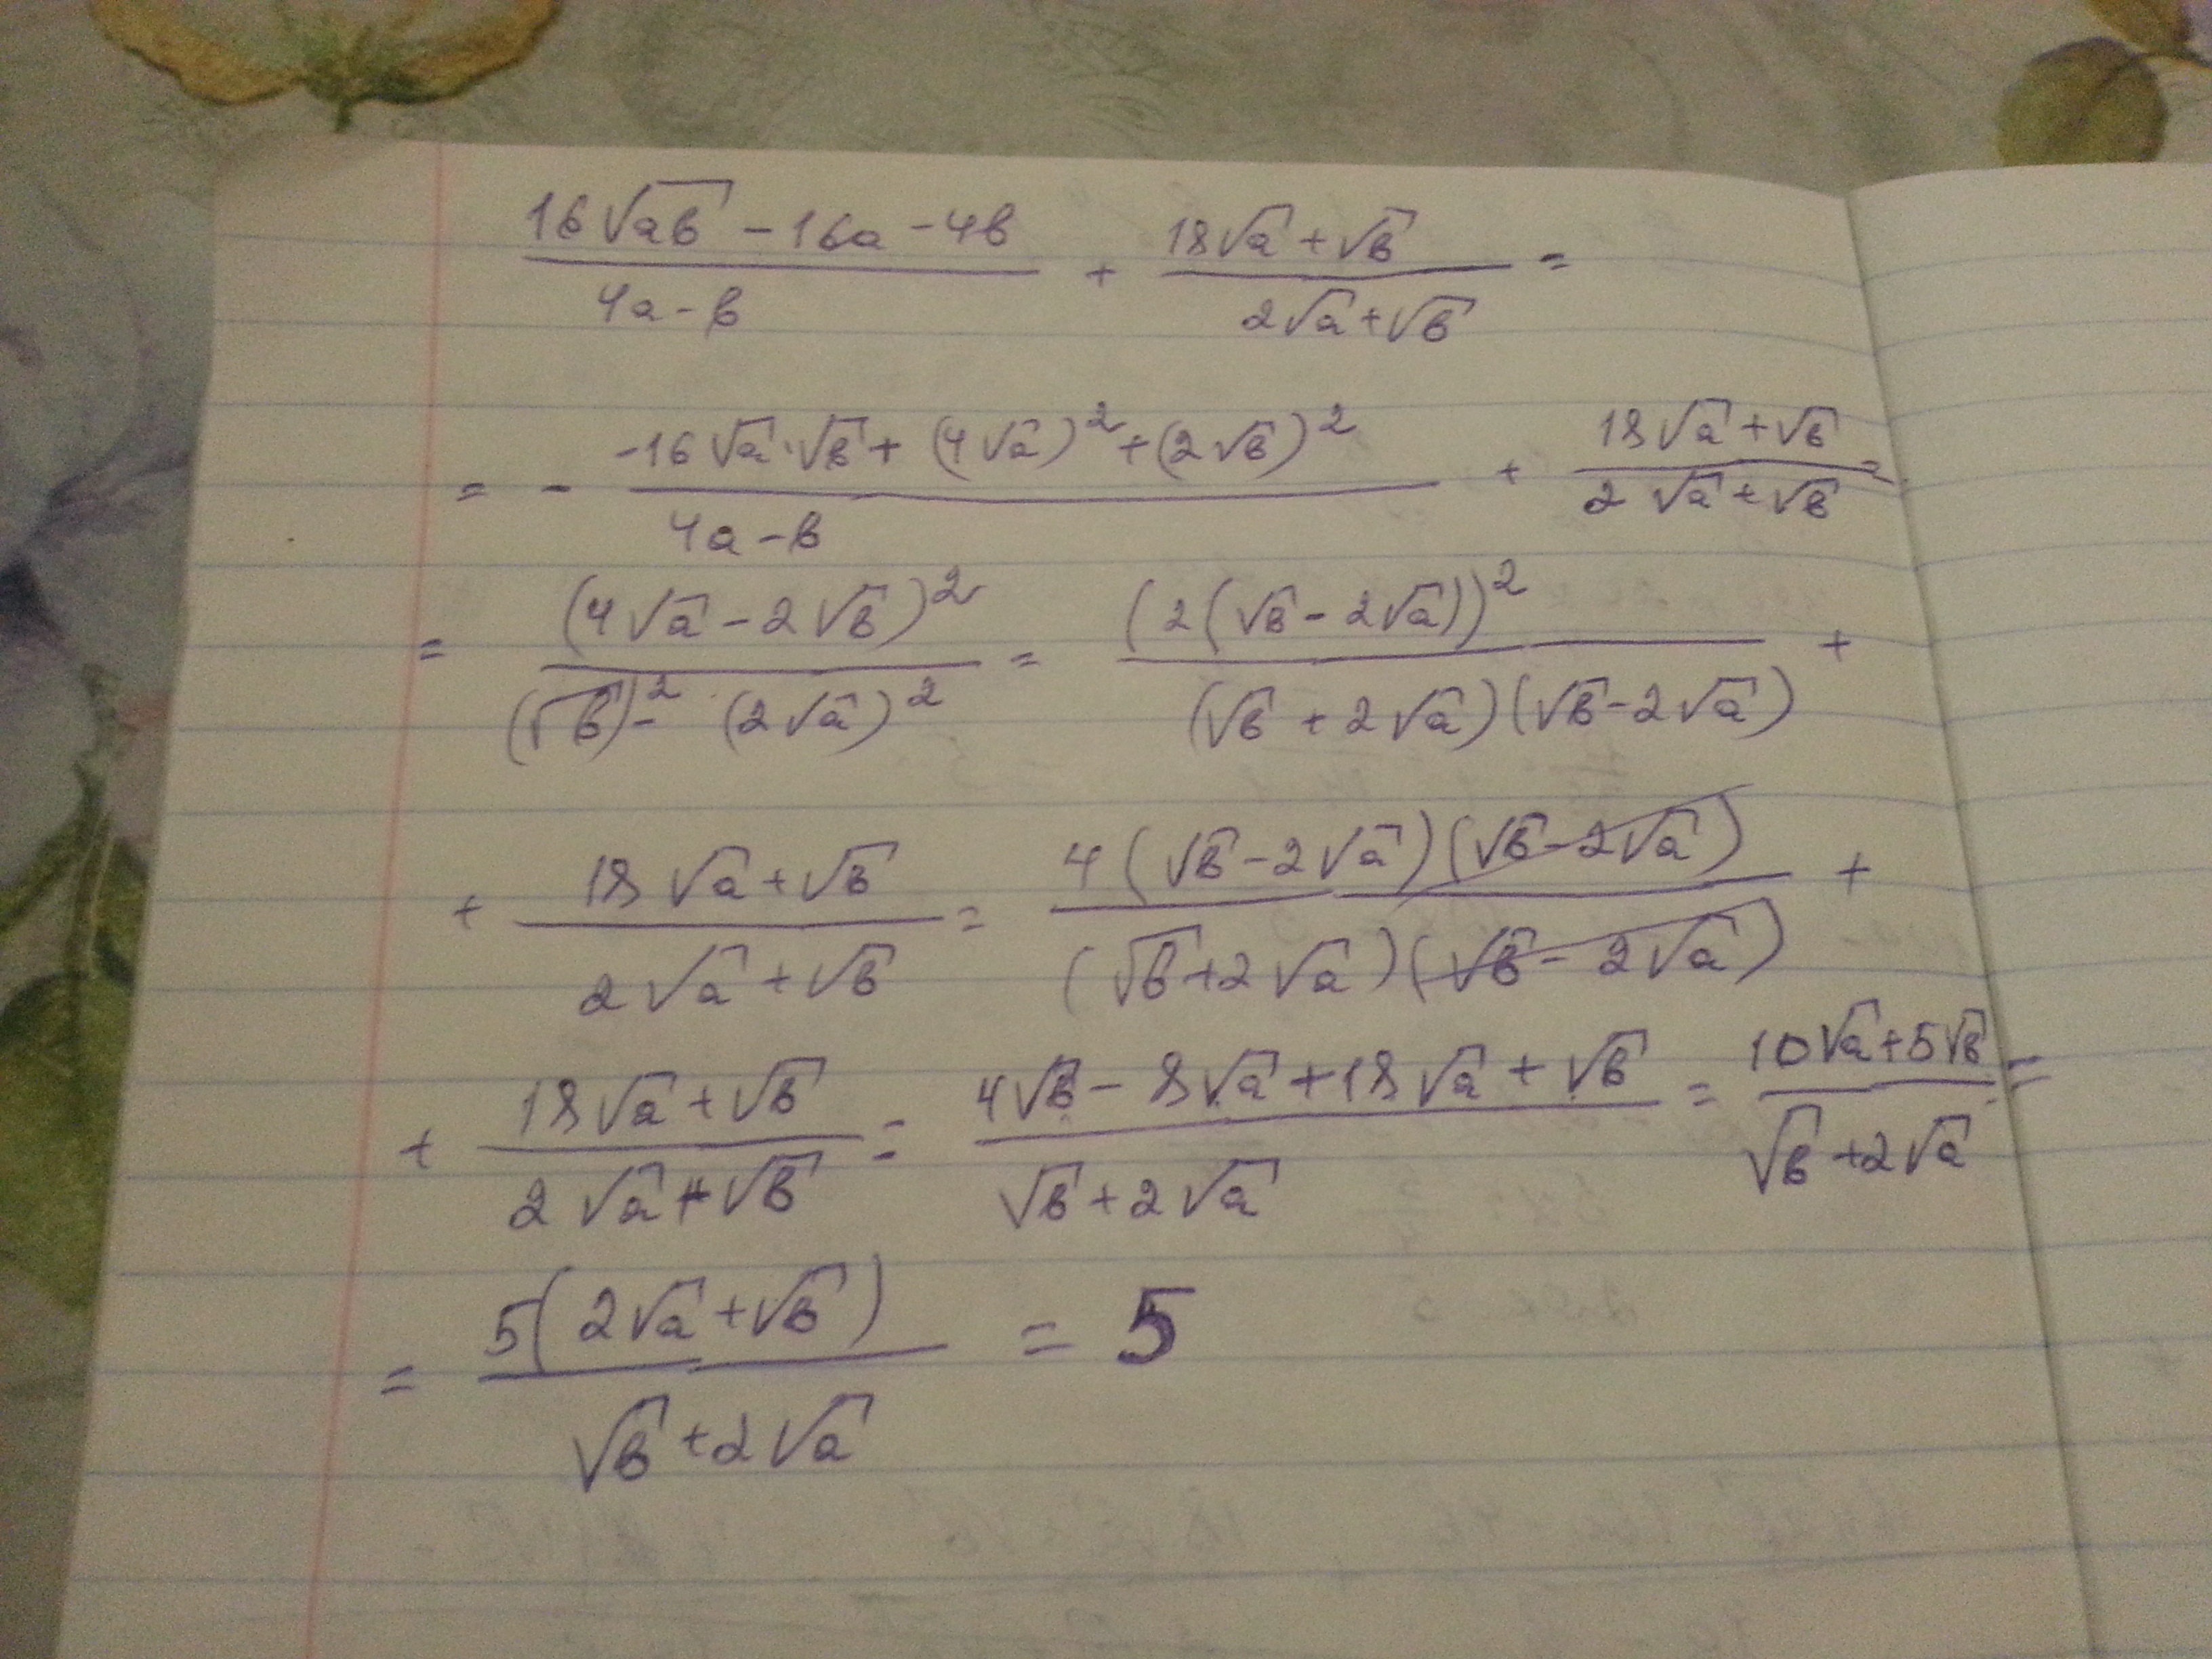 (16√ab - 16a - 4b)/(4a - b) + (18√a + √b)/(2√a + √b) =
= - (-16√a·√b + (4√a)² + (2√b)²)/(4a - b) + (18√a + √b)/(2√a + √b) =
= (4√a - 2√b)²/((√b)² - (2√a)²) = (2(√b - 2√a))²/((√b + 2√a)(√b - 2√a)) +
+ (18√a + √b)/(2√a + √b) = 4(√b - 2√a)(√b - 2√a)/((√b + 2√a)(√b - 2√a)) +
+ (18√a + √b)/(2√a + √b) = (4√b - 8√a + 18√a + √b)/(√b + 2√a) = (10√a + 5√b)/(√b + 2√a) =
= 5(2√a + √b)/(√b + 2√a) = 5